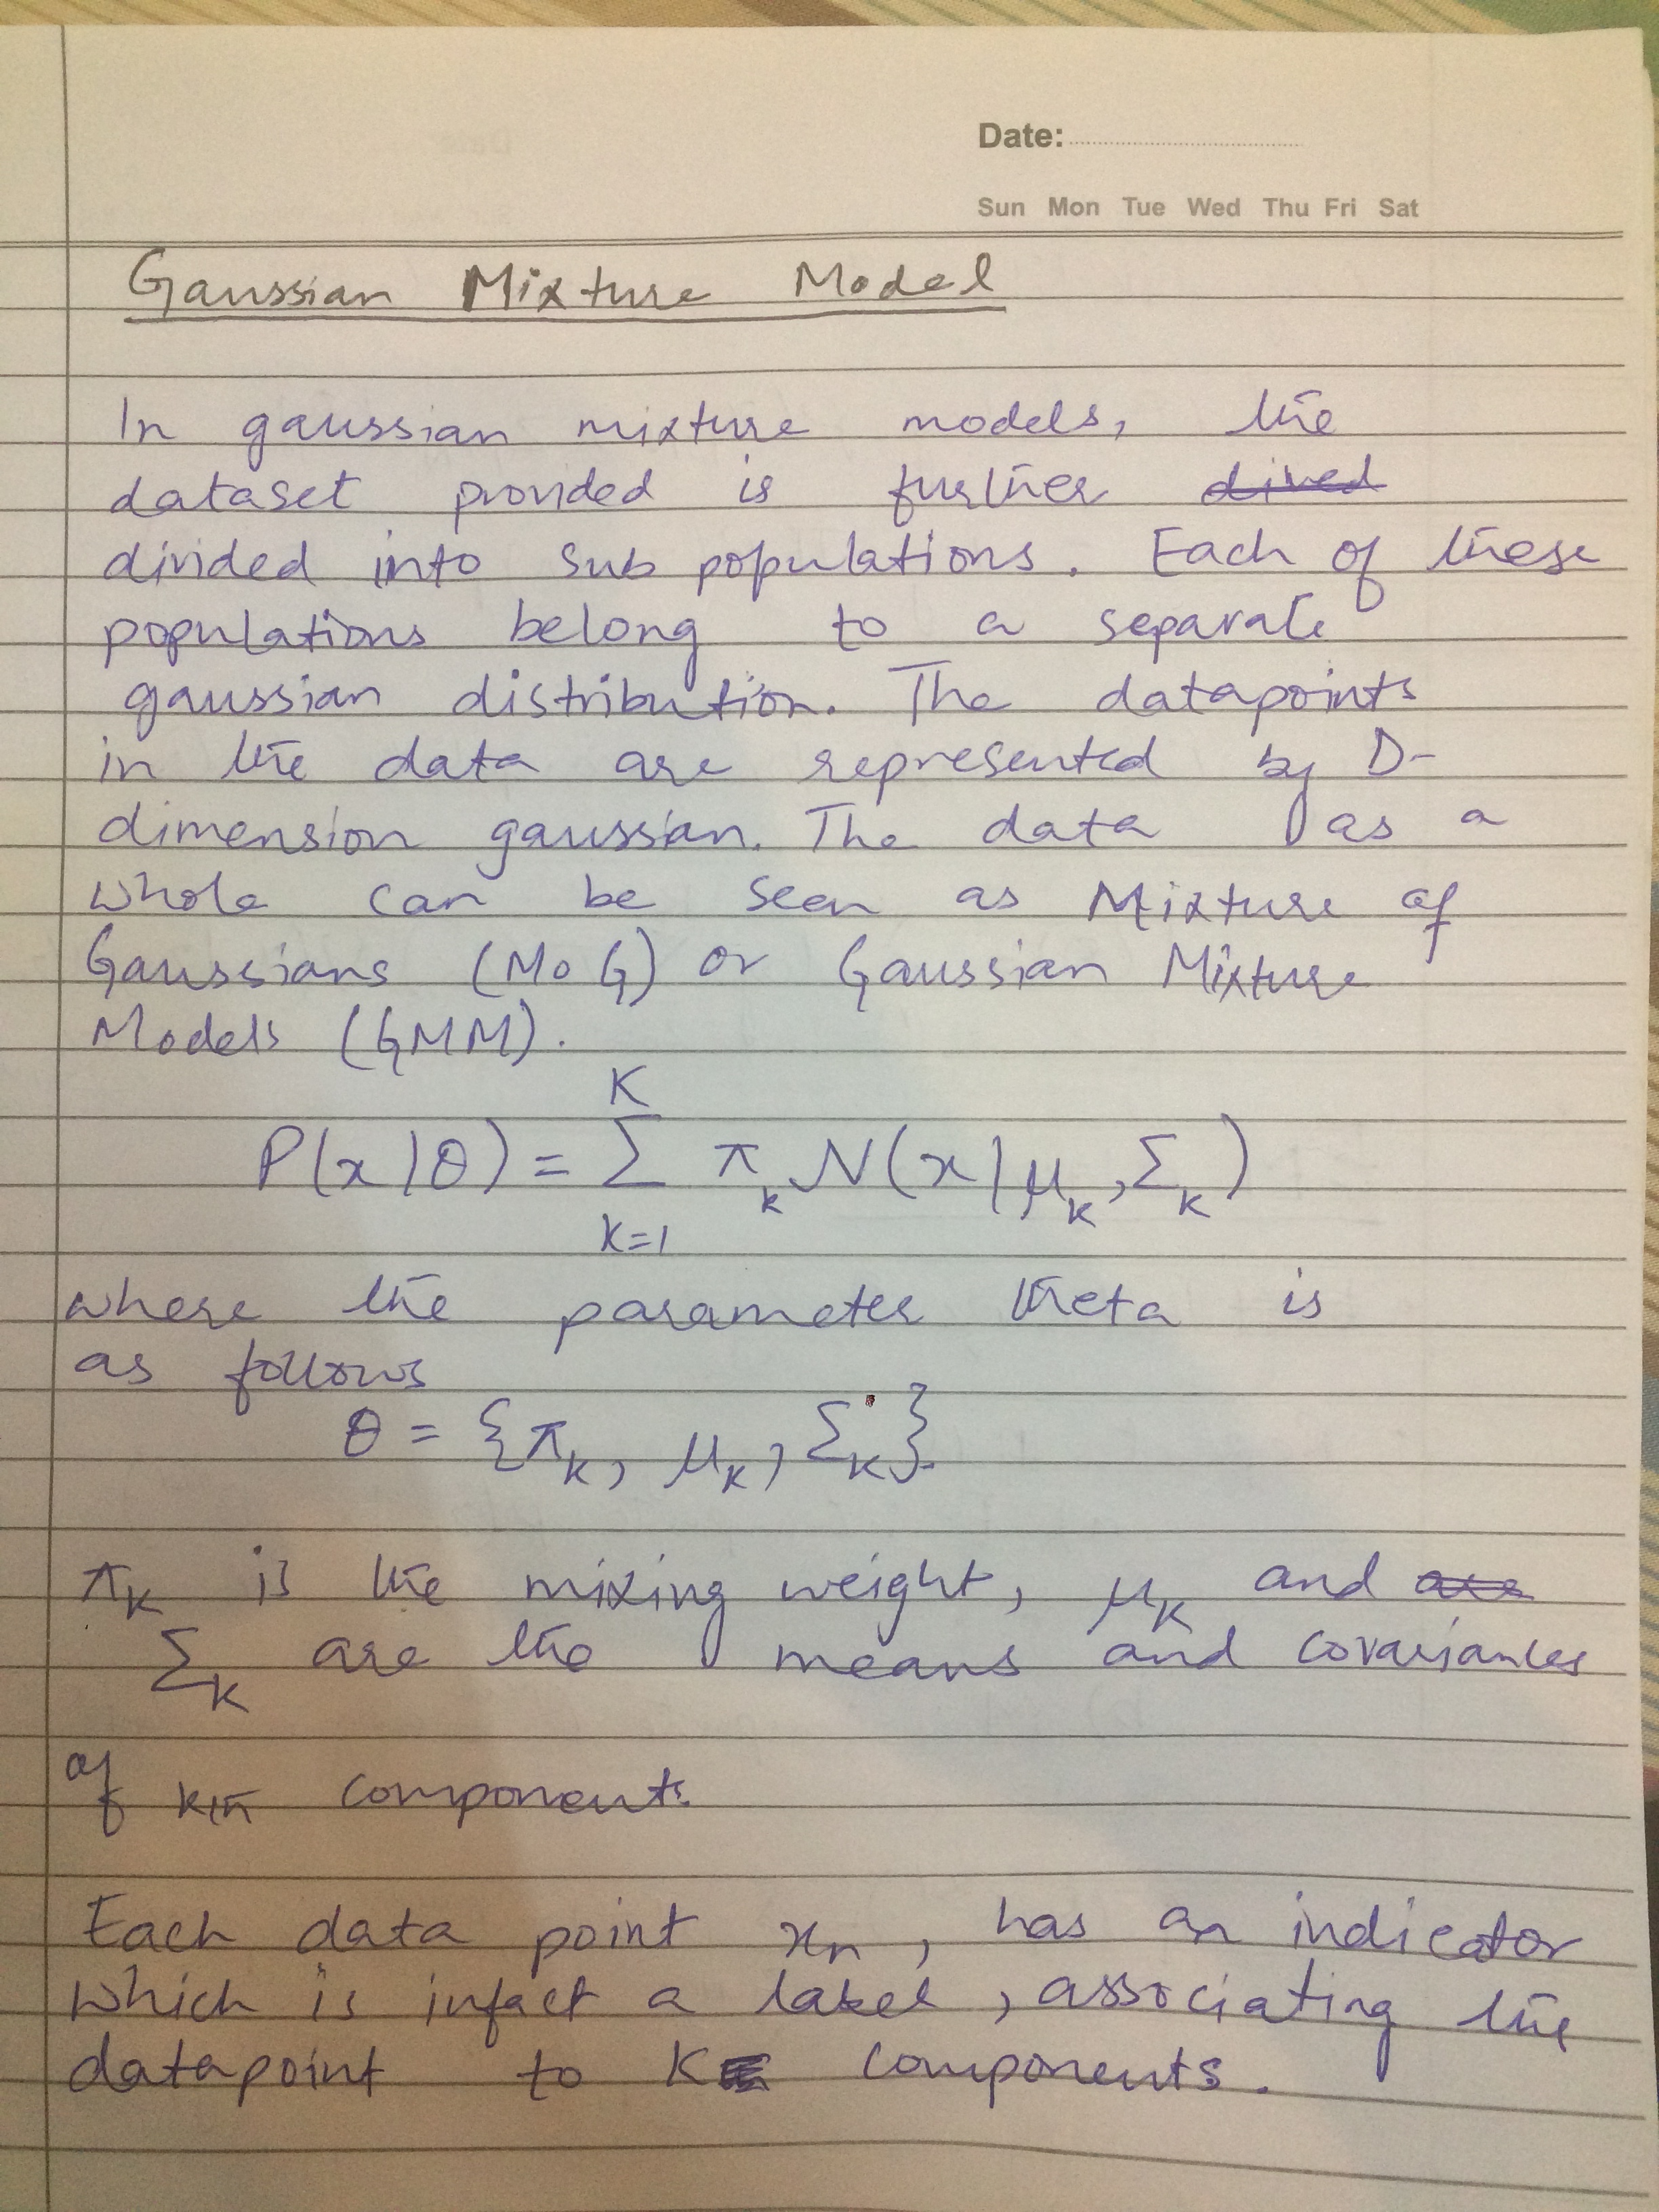 Date:
Sun Mon Tue Wed Thu Fri Sat
Gaussian Mixture Model
In gaussian mixture models, the
dataset provided is further dived
divided into sub populations. Each of these
populations belong to a separate
gaussian distribution. The datapoints
in the data are represented by D-
dimension gaussian. The data as a
whole can be seen as Mixture of
Gaussians (MoG) or Gaussian Mixture
Models (GMM).
P(x|θ) = Σ_{k=1}^{K} π_k N(x|μ_k, Σ_k)
where the parameter theta is
as follows
θ = {π_k, μ_k, Σ_k}.
π_k is the mixing weight, μ_k and are
Σ_k are the means and covariances
of kth components.
Each data point x_n, has an indicator
which is infact a label, associating the
datapoint to K components.